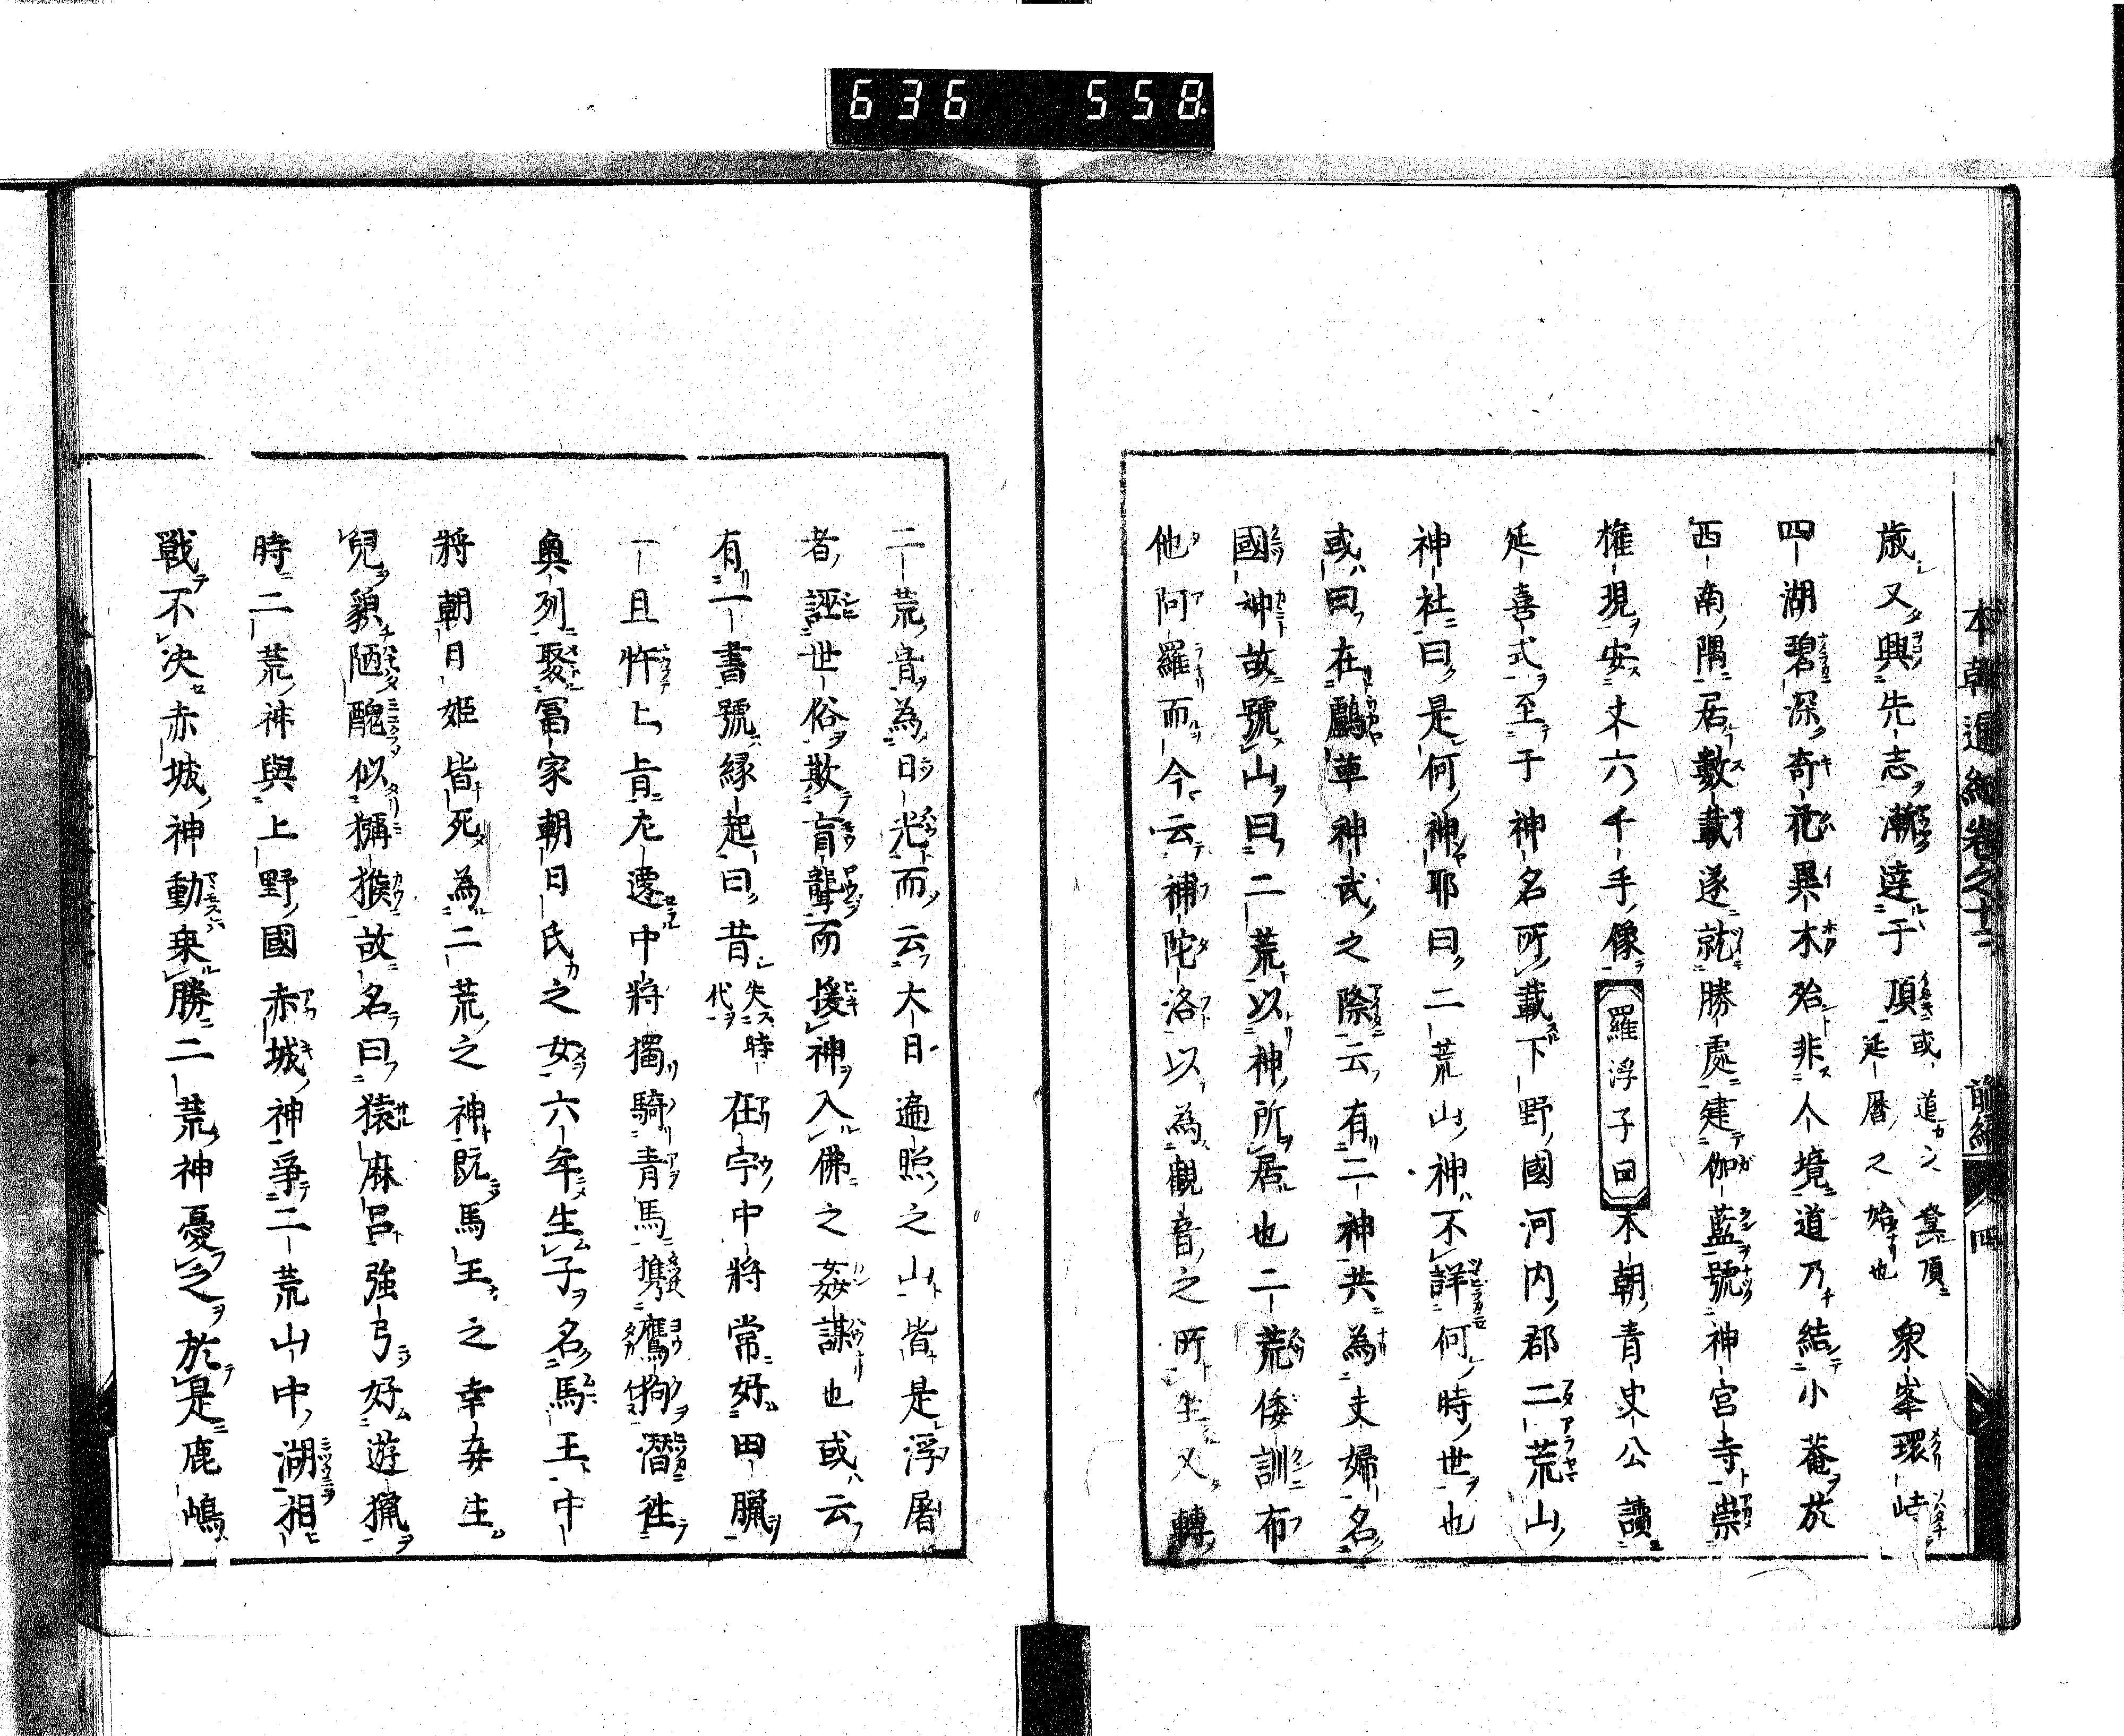 636 558
本朝通紀卷之十二 前編 四
歳又興先志漸達于頂或道カ之登頂延曆之始也衆峯環峙
四湖碧深奇花異木殆非人境道乃結小菴於
西南隅居數載遂就勝處建伽藍號神宮寺崇
權現安丈六千手像羅浮子曰本朝青史公讀
延喜式至于神名所載下野國河内郡二荒山
神社曰是何神耶曰二荒山神不詳何時世也
或曰在鸕草神武之際云有二神共為夫婦名
國神故號山曰二荒以神所居也二荒倭訓布
他阿羅而今云補陀洛以為觀音之所坐又轉
二荒音為日光而云大日遍照之山皆是浮屠
者誣世俗欺盲聾而援神入佛之姦謀也或云
有一書號縁起曰昔失時代在宇中將常好田臘
一旦忤上旨左遷中將獨騎青馬携鷹狗潛徃
奥列聚冨家朝日氏之女六年生子名馬王中
將朝日姫皆死為二荒之神既馬王之幸妾生
兒貌陋醜似獼猴故名曰猿麻呂強弓好遊獵
時二荒神與上野國赤城神爭二荒山中湖相
戰不決赤城神動乗勝二荒神憂之於是鹿嶋